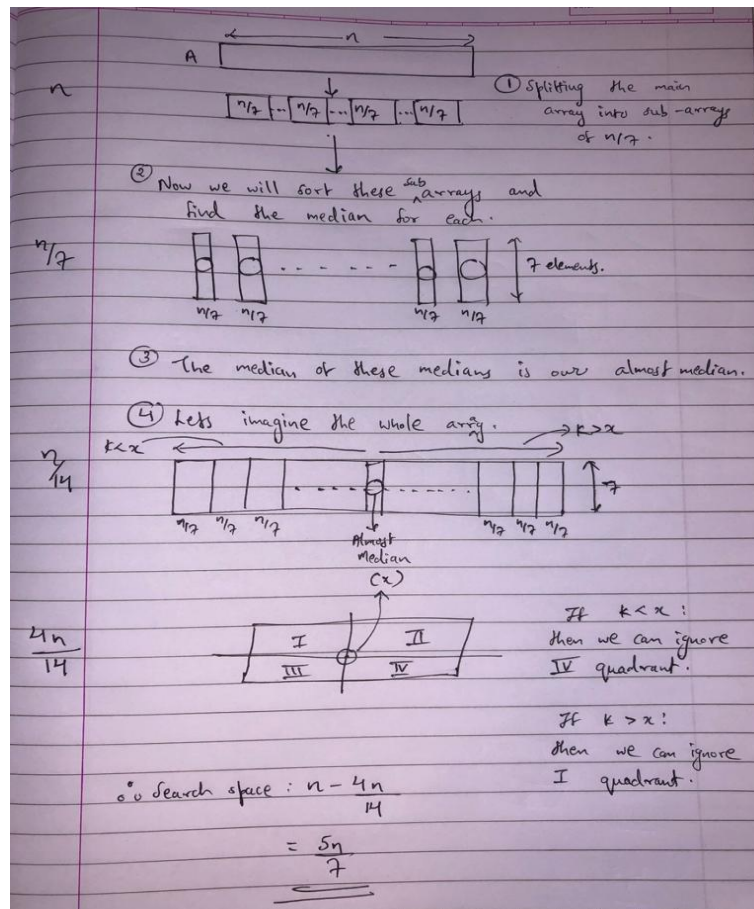 n
A
n
n/7 ... n/7 ... n/7 ... n/7
① Splitting the main
array into sub-arrays
of n/7.
② Now we will sort these sub arrays and
find the median for each.
n/7
7 elements.
n/7 n/7 n/7 n/7
③ The median of these medians is our almost median.
④ Lets imagine the whole array.
k<x
k>x
n/14
7
n/7 n/7 n/7 n/7 n/7 n/7
Almost
median
(x)
4n/14
I II
III IV
If k<x:
then we can ignore
IV quadrant.
If k>x:
then we can ignore
I quadrant.
∴ Search space: n - 4n/14
= 5n/7